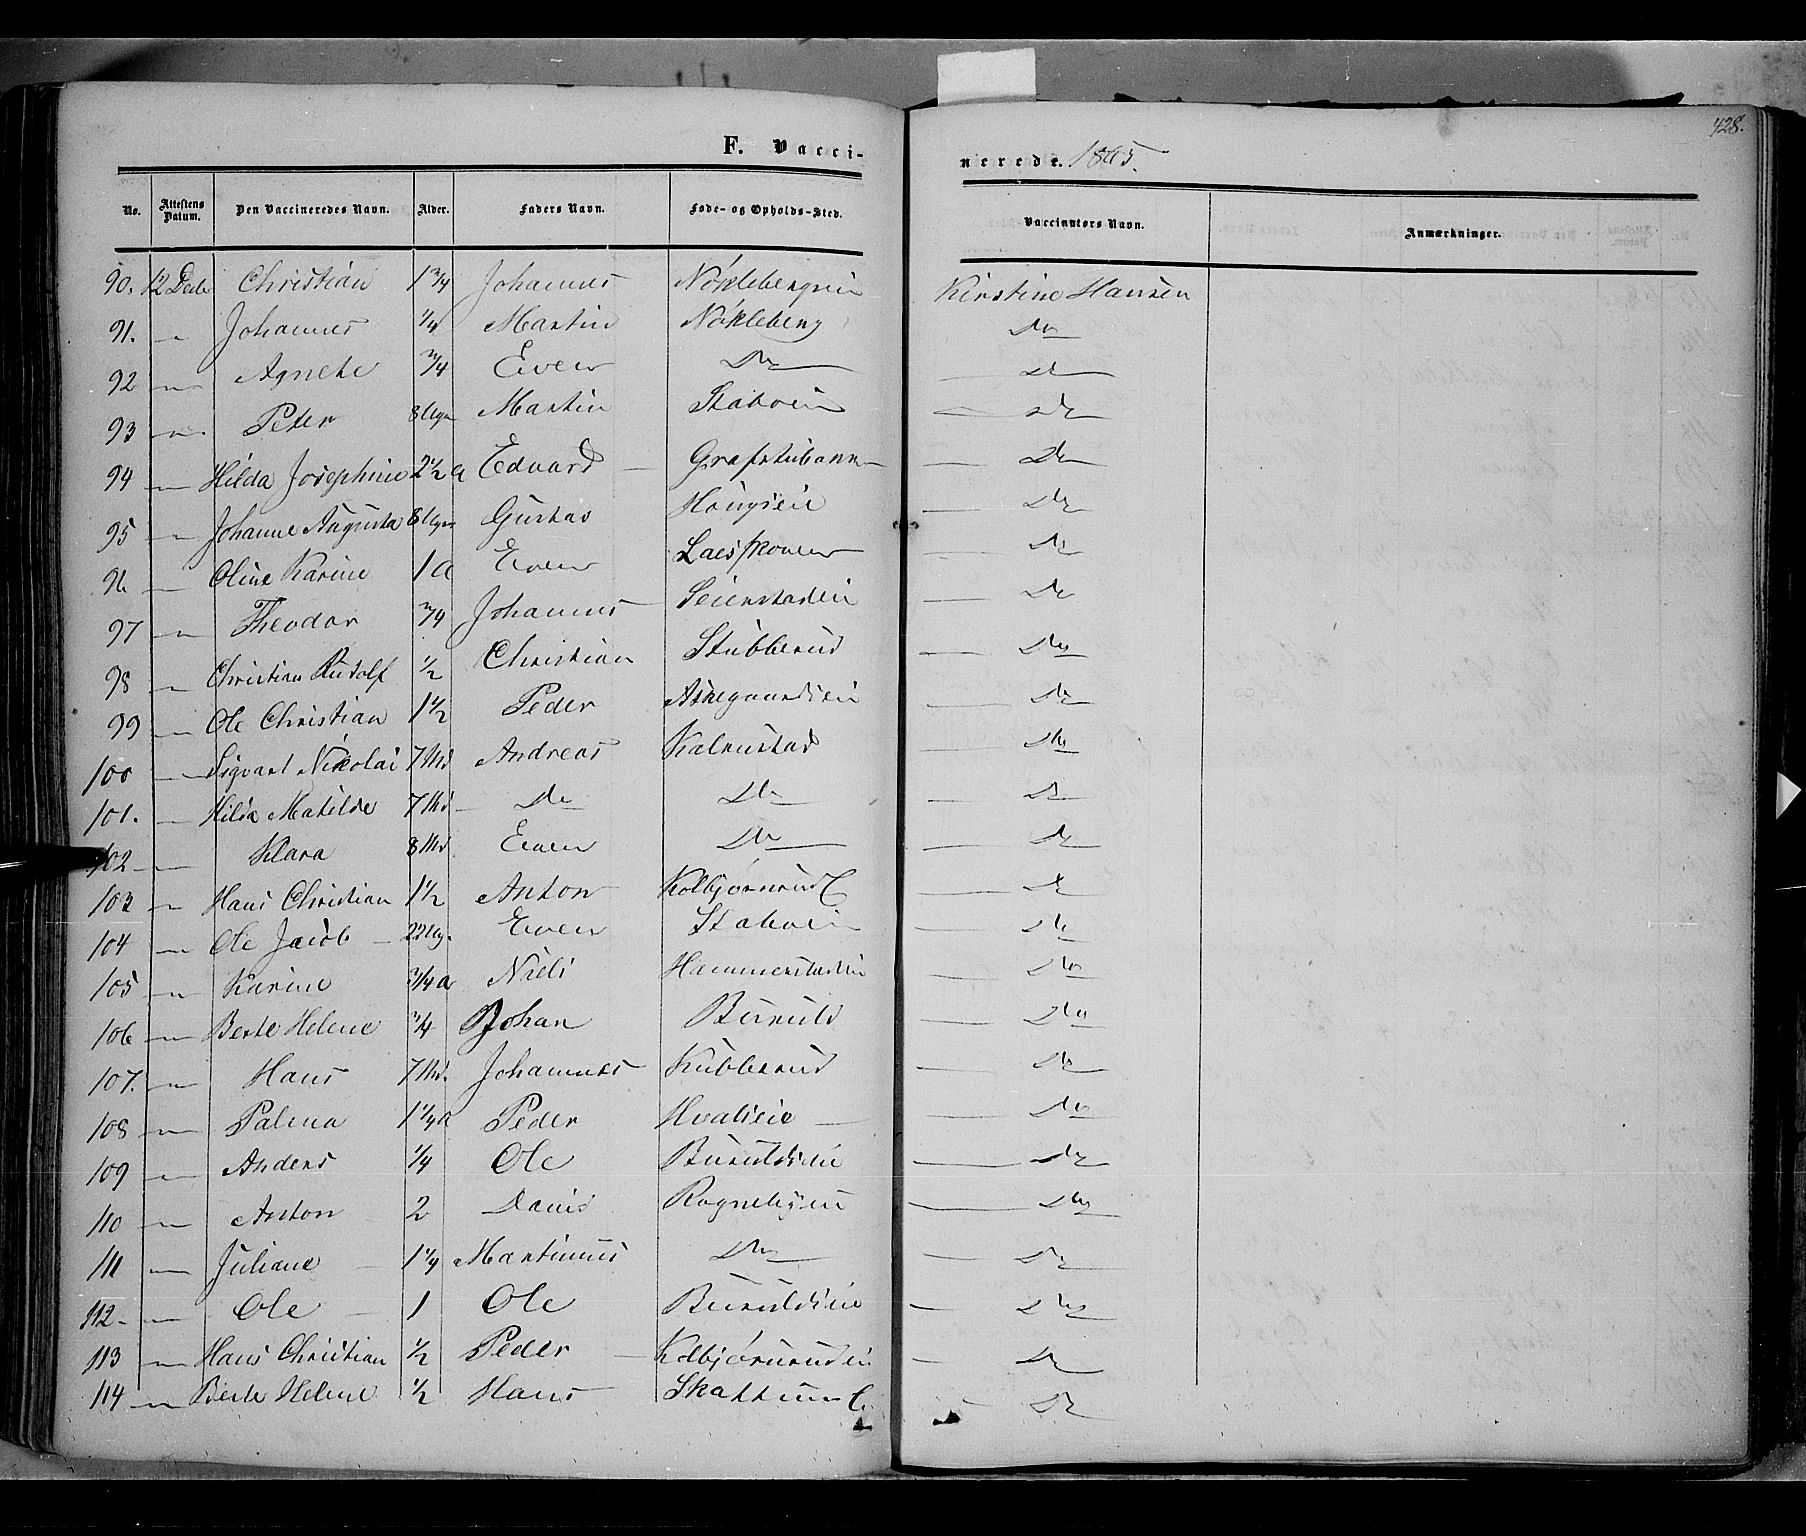 428.
F. Vacci-nerede. 1865.
No. Attestens Datum. Den Vaccineredes Navn. Alder. Faders Navn. Føde- og Opholds-Sted. Vaccinators Navn. Anmærkninger.
90. 12 Decbr Christian 1 3/4 Johannes Nøklebergeie Kirstine Hansen
91. " Johannes 1/4 Martin Nøkleberg Do
92 " Agnethe 3/4 Even Do Do
93 " Peder 8 Ugr Martin Staboeie Do
94 " Hilda Josephine 2 1/2 a Edvard Do
95 " Johanne Augusta 8 Ugr Gustav Haugseie Do
96 " Oline Karine 1 a Even Do
97 " Theodor 3/4 Johannes Seierstadeie Do
98 " Christian Rudolf 1/2 Christian Stubberud Do
99 " Ole Christian 1 1/2 Peder Do
100 " Sigvart Nikolai 7 Md Andreas Kalrustad Do
101. " Hilda Matilde 7 Md Do Do Do
102 " Klara 8 Md Even Do Do
103 " Hans Christian 1 1/2 Anton Kolbjørnrud E Do
104 " Ole Jacob 22 Ug. Even Staboeie Do
105 " Karine 3/4 a Niels Hammerstadeie Do
106 " Berte Helene 3/4 Johan Buruld Do
107. " Hans 7 Md. Johannes Kubberud Do
108 " Palma 1 1/4 a Peder Hvalseie Do
109 " Anders 1/4 Ole Buruldseie Do
110 " Anton 2 Rognebyeie Do
111 " Juliane 1 1/4 Martinus Do Do
112 " Ole 1 Ole Buruldseie Do
113 " Hans Christian 1/2 Peder Kolbjørnrudeie Do
114 " Berte Helene 1/2 Hans Skattum E Do